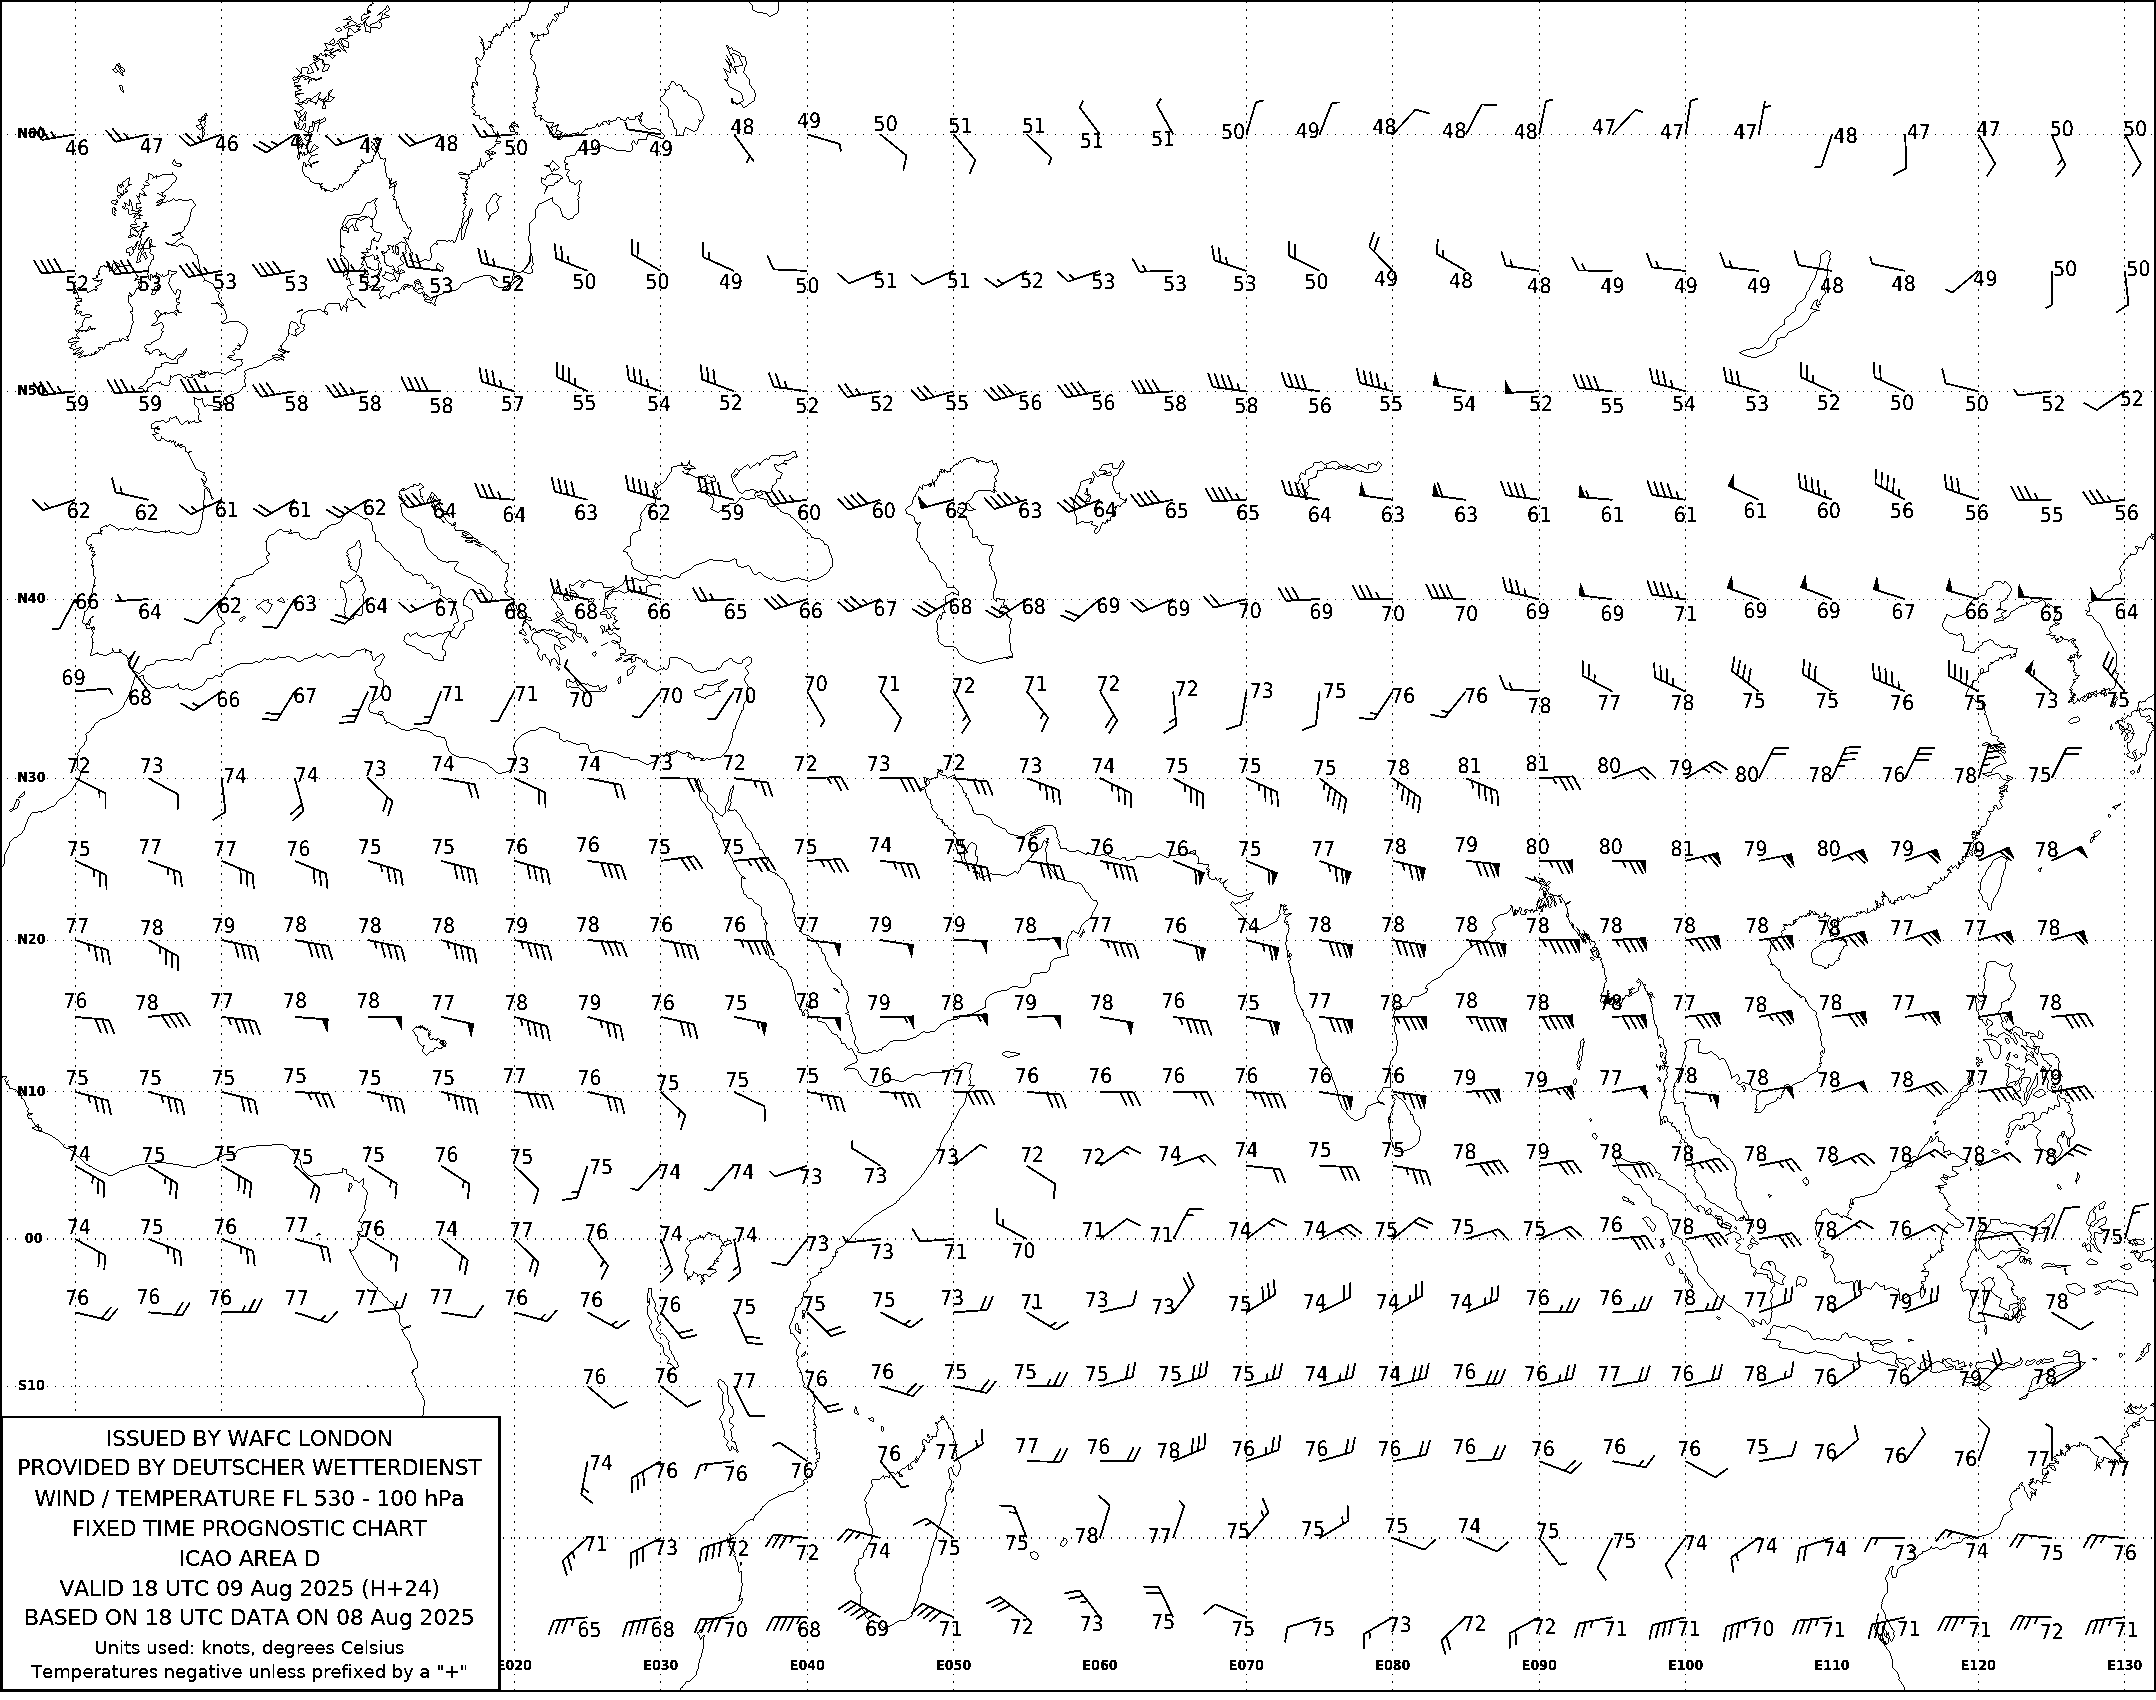 N60 46 47 46 47 47 48 50 49 49 48 49 50 51 51 51 51 50 49 48 48 48 47 47 47 48 47 47 50 50
52 53 53 53 52 53 52 50 50 49 50 51 51 52 53 53 53 50 49 48 48 49 49 49 48 48 49 50 50
N50 59 59 58 58 58 58 57 55 54 52 52 52 55 56 56 58 58 56 55 54 52 55 54 53 52 50 50 52 52
62 62 61 61 62 64 64 63 62 59 60 60 62 63 64 65 65 64 63 63 61 61 61 61 60 56 56 55 56
N40 66 64 62 63 64 67 68 68 66 65 66 67 68 68 69 69 70 69 70 70 69 69 71 69 69 67 66 65 64
69 68 66 67 70 71 71 70 70 70 70 71 72 71 72 72 73 75 76 76 78 77 78 75 75 76 75 73 75
N30 72 73 74 74 73 74 73 74 73 72 72 73 72 73 74 75 75 75 78 81 81 80 79 80 78 76 78 75
75 77 77 76 75 75 76 76 75 75 75 74 75 76 76 76 75 77 78 79 80 80 81 79 80 79 79 78
N20 77 78 79 78 78 78 79 78 76 76 77 79 79 78 77 76 74 78 78 78 78 78 78 78 78 77 77 78
76 78 77 78 78 77 78 79 76 75 78 79 78 79 78 76 75 77 78 78 78 78 77 78 78 77 77 78
N10 75 75 75 75 75 75 77 76 75 75 75 76 77 76 76 76 76 76 76 79 79 77 78 78 78 78 77 79
74 75 75 75 75 76 75 75 74 74 73 73 73 72 72 74 74 75 75 78 79 78 78 78 78 78 78 78
00 74 75 76 77 76 74 77 76 74 74 73 73 71 70 71 71 74 74 75 75 75 76 78 79 78 76 75 77 75
76 76 76 77 77 77 76 76 76 75 75 75 73 71 73 73 75 74 74 74 76 76 78 77 78 79 77 78
S10 76 76 77 76 76 75 75 75 75 75 74 74 76 76 77 76 78 76 76 79 78
74 76 76 76 76 77 77 76 78 76 76 76 76 76 76 76 75 76 76 76 77 77
71 73 72 72 74 75 75 78 77 75 75 75 74 75 75 74 74 74 73 74 75 76
65 68 70 68 69 71 72 73 75 75 75 73 72 72 71 71 70 71 71 71 72 71
E020 E030 E040 E050 E060 E070 E080 E090 E100 E110 E120 E130
ISSUED BY WAFC LONDON
PROVIDED BY DEUTSCHER WETTERDIENST
WIND / TEMPERATURE FL 530 - 100 hPa
FIXED TIME PROGNOSTIC CHART
ICAO AREA D
VALID 18 UTC 09 Aug 2025 (H+24)
BASED ON 18 UTC DATA ON 08 Aug 2025
Units used: knots, degrees Celsius
Temperatures negative unless prefixed by a "+"